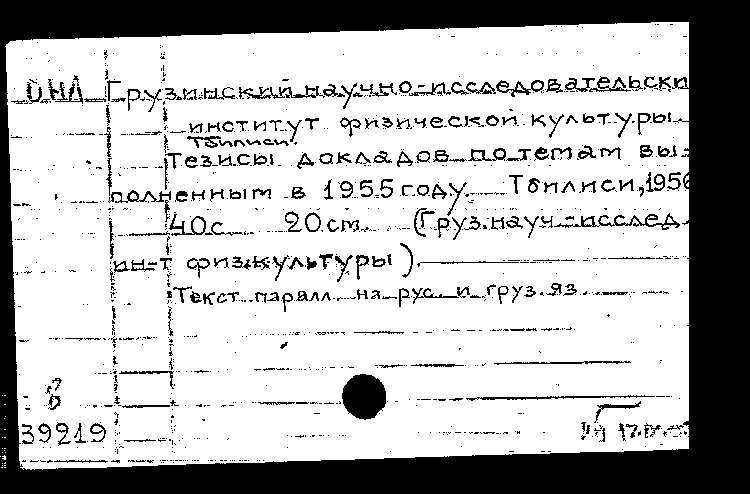 ОНЛ Грузинский научно-исследовательски
институт физической культуры.
Тбилиси.
Тезисы докладов по темам вы-
полненным в 1955 году. Тбилиси, 1956
40с 20см. (Груз.науч.-исслед.
ин-т физ.культуры).
Текст паралл. на рус. и груз.яз.
8
39219